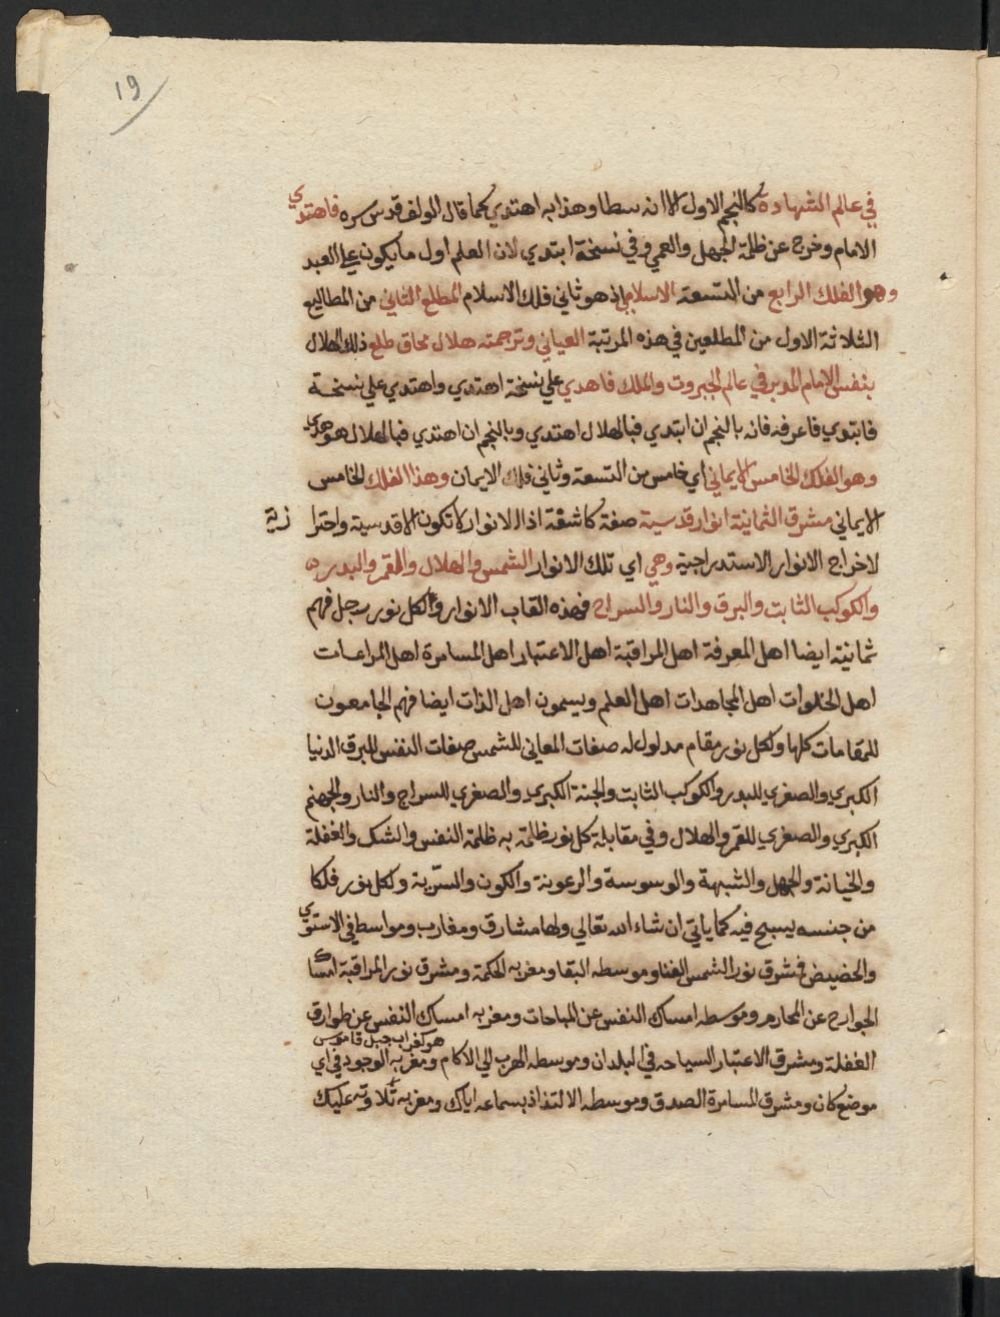 19
في عالم الشهادة كالنجم الاول الا انه سطا وهذا به اهتدي كما قال المولف قدس سره فاهتدي
الامام وخرج عن ظلمة الجهل والعمي وفي نسخة ابتدي لان العلم اول ما يكون علي العبد
وهو الفلك الرابع من التسعة الاسلامي اذ هو ثاني فلك الاسلام المطلع الثاني من المطاليع
الثلاثة الاول من المطلعين في هذه المرتبة العياني وترجمته هلال محاق طلع ذلك الهلال
بنفس الامام المدبر في عالم الجبروت والملك فاهدي علي نسخة اهتدي واهتدي علي نسخة
فابتدي فاعرفه فانه بالنجم ان ابتدي فبالهلال اهتدي وبالنجم ان اهتدي فبالهلال هو هدي
وهو الفلك الخامس الايماني اي خامس من التسعة وثاني فلك الايمان وهذا الفلك الخامس
الايماني مشرق الثمانية انوار قدسية صفة كاشفة اذ الانوار لا تكون الا قدسية واحترا زية
لاخراج الانوار الاستدراجية وهي اي تلك الانوار الشمس والهلال والقمر والبدر
والكوكب الثابت والبرق والنار والسراج فهذه القاب الانوار ولكل نور رجل فهم
ثمانية ايضا اهل المعرفة اهل المراقبة اهل الاعتبار اهل المسامرة اهل المراعات
اهل الخلوات اهل المجاهدات اهل العلم ويسمون اهل الذات ايضا فهم الجامعون
للمقامات كلها ولكل نور مقام مدلول له صفات المعاني للشمس صفات النفس للبرق الدنيا
الكبري والصغري للبدر والكوكب الثابت والجنة الكبري والصغري للسراج والنار والجهنم
الكبري والصغري للقمر والهلال وفي مقابلة كل نور ظلمة به ظلمة النفس والشك والغفلة
والخيانة والجهل والشبهة والوسوسة والرعونة والكون والسترية ولكل نور فلكا
من جنسه يسبح فيه كما ياتي ان شاء الله تعالي ولها مشارق ومغارب ومواسط في الاستوي
والحضيض فمشرق نور الشمس الفنا وموسطه البقا ومغربه الحكمة ومشرق نور المراقبة امساك
الجوارح عن المحارم وموسطه امساك النفس عن المباحات ومغربه امساك النفس عن طوارق
هو كغراب جبل قاموس
الغفلة ومشرق الاعتبار السياحة في البلدان وموسطه الهرب الي الاكام ومغربه الوجود في اي
موضع كان ومشرق المسامرة الصدق وموسطه الالتذاذ بسماعه اياك ومغربه تلاوته عليك